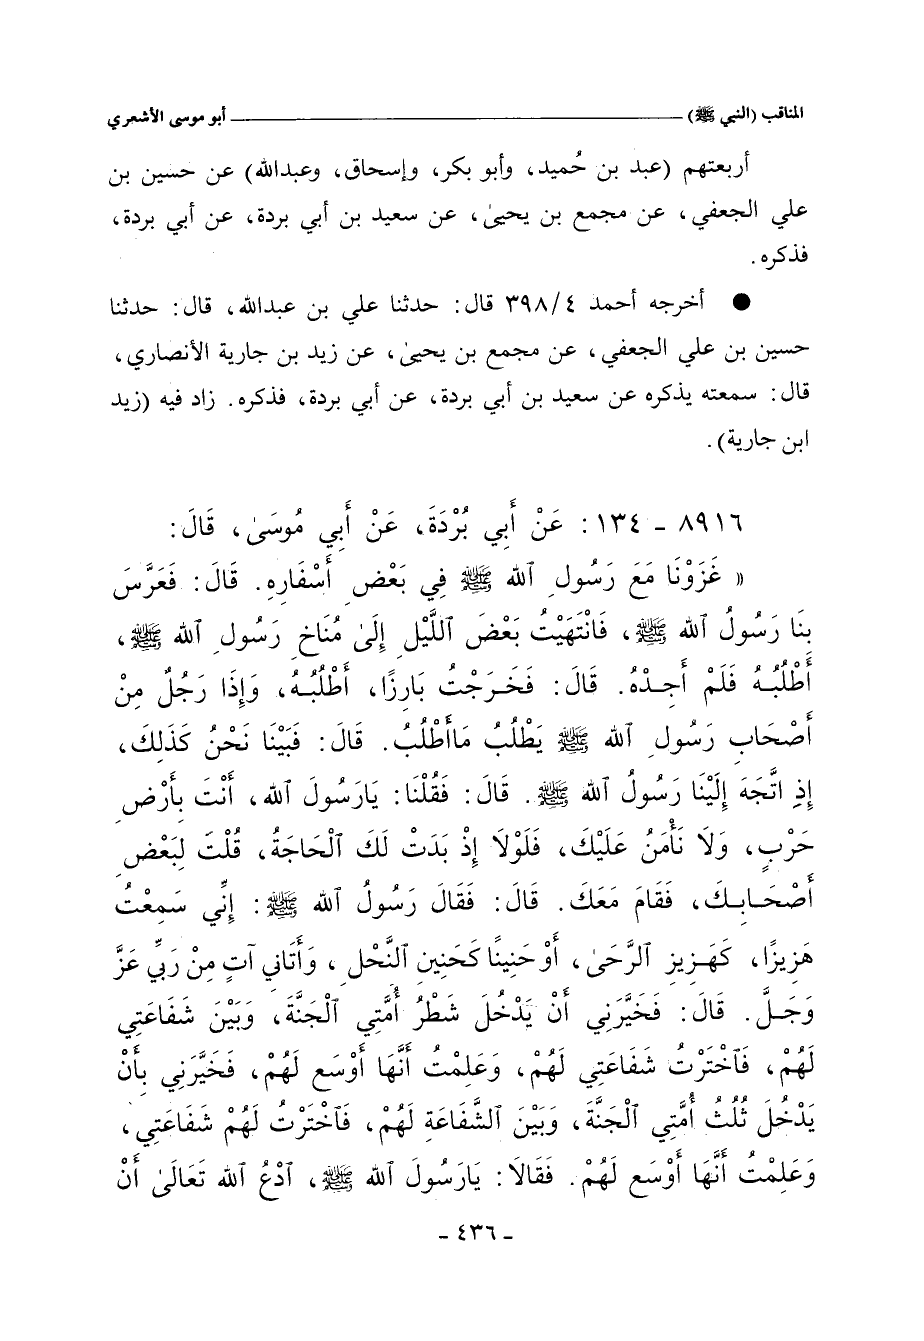 المناقب (النبي ﷺ) ـــــــــ أبو موسى الأشعري
أربعتهم (عبد بن حُميد، وأبو بكر، وإسحاق، وعبدالله) عن حسين بن
علي الجعفي، عن مجمع بن يحيىٰ، عن سعيد بن أبي بردة، عن أبي بردة،
فذكره.
● أخرجه أحمد ٣٩٨/٤ قال: حدثنا علي بن عبدالله، قال: حدثنا
حسين بن علي الجعفي، عن مجمع بن يحيىٰ، عن زيد بن جارية الأنصاري،
قال: سمعته يذكره عن سعيد بن أبي بردة، عن أبي بردة، فذكره. زاد فيه (زيد
ابن جارية).
٨٩١٦ - ١٣٤: عَنْ أَبِي بُرْدَةَ، عَنْ أَبِي مُوسَىٰ، قَالَ:
« غَزَوْنَا مَعَ رَسُولِ ٱلله ﷺ فِي بَعْضِ أَسْفَارِهِ. قَالَ: فَعَرَّسَ
بِنَا رَسُولُ ٱلله ﷺ، فَانْتَهَيْتُ بَعْضَ ٱللَّيْلِ إِلَىٰ مُنَاخِ رَسُولِ ٱلله ﷺ،
أَطْلُبُهُ فَلَمْ أَجِدْهُ. قَالَ: فَخَرَجْتُ بَارِزًا، أَطْلُبُهُ، وَإِذَا رَجُلٌ مِنْ
أَصْحَابِ رَسُولِ ٱلله ﷺ يَطْلُبُ مَاأَطْلُبُ. قَالَ: فَبَيْنَا نَحْنُ كَذَلِكَ،
إِذِ اتَّجَهَ إِلَيْنَا رَسُولُ ٱلله ﷺ. قَالَ: فَقُلْنَا: يَارَسُولَ ٱلله، أَنْتَ بِأَرْضِ
حَرْبٍ، وَلَا نَأْمَنُ عَلَيْكَ، فَلَوْلَا إِذْ بَدَتْ لَكَ ٱلْحَاجَةُ، قُلْتَ لِبَعْضِ
أَصْحَابِكَ، فَقَامَ مَعَكَ. قَالَ: فَقَالَ رَسُولُ ٱلله ﷺ: إِنِّي سَمِعْتُ
هَزِيزًا، كَهَزِيزِ ٱلرَّحَىٰ، أَوْ حَنِينًا كَحَنِينِ ٱلنَّحْلِ، وَأَتَانِي آتٍ مِنْ رَبِّي عَزَّ
وَجَلَّ. قَالَ: فَخَيَّرَنِي أَنْ يَدْخُلَ شَطْرُ أُمَّتِي ٱلْجَنَّةَ، وَبَيْنَ شَفَاعَتِي
لَهُمْ، فَٱخْتَرْتُ شَفَاعَتِي لَهُمْ، وَعَلِمْتُ أَنَّهَا أَوْسَع لَهُمْ، فَخَيَّرَنِي بِأَنْ
يَدْخُلَ ثُلُثُ أُمَّتِي ٱلْجَنَّةَ، وَبَيْنَ ٱلشَّفَاعَةِ لَهُمْ، فَٱخْتَرْتُ لَهُمْ شَفَاعَتِي،
وَعَلِمْتُ أَنَّهَا أَوْسَع لَهُمْ. فَقَالَا: يَارَسُولَ ٱلله ﷺ، ٱدْعُ ٱلله تَعَالَىٰ أَنْ
- ٤٣٦ -